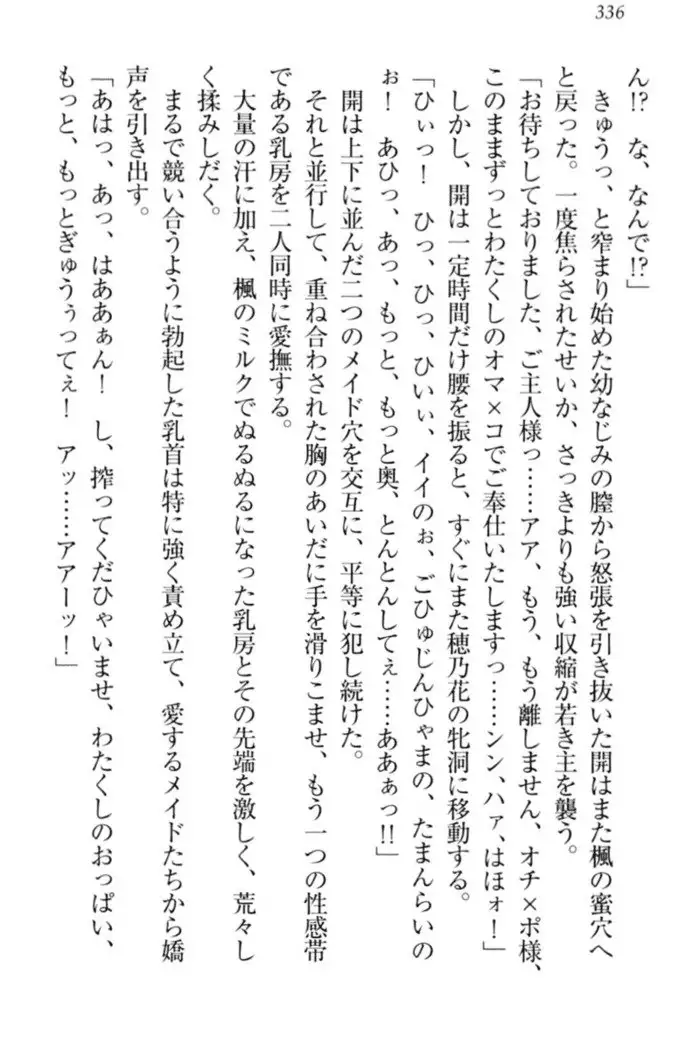 336
ん!?　な、なんで!?」
きゅうっ、と窄まり始めた幼なじみの膣から怒張を引き抜いた開はまた楓の蜜穴へ
と戻った。一度焦らされたせいか、さっきよりも強い収縮が若き主を襲う。
「お待ちしておりました、ご主人様っ……アア、もう、もう離しません、オチ×ポ様、
このままずっとわたくしのオマ×コでご奉仕いたしますっ……ンン、ハァ、はほォ！」
しかし、開は一定時間だけ腰を振ると、すぐにまた穂乃花の牝洞に移動する。
「ひぃっ！　ひっ、ひっ、ひいぃ、イイのぉ、ごひゅじんひゃまの、たまんらいの
ぉ！　あひっ、あっ、もっと、もっと奥、とんとんしてぇ……ああぁっ!!」
開は上下に並んだ二つのメイド穴を交互に、平等に犯し続けた。
それと並行して、重ね合わされた胸のあいだに手を滑りこませ、もう一つの性感帯
である乳房を二人同時に愛撫する。
大量の汗に加え、楓のミルクでぬるぬるになった乳房とその先端を激しく、荒々し
く揉みしだく。
まるで競い合うように勃起した乳首は特に強く責め立て、愛するメイドたちから嬌
声を引き出す。
「あはっ、あっ、はああぁん！　し、搾ってくだひゃいませ、わたくしのおっぱい、
もっと、もっとぎゅうぅってぇ！　アッ……アアーッ！」